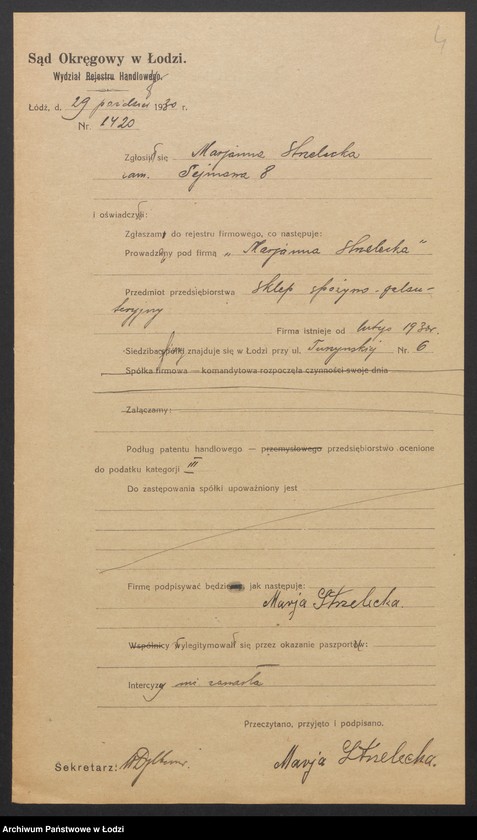 4
Sąd Okręgowy w Łodzi.
Wydział Rejestru Handlowego.
Łódź, d. 29 paździer 1930 r.
Nr. 1420
Zgłosiła się Marjanna Strzelecka
zam. 8
i oświadczyła:
Zgłaszam do rejestru firmowego, co następuje:
Prowadzimy pod firmą „Marjanna Strzelecka"
Przedmiot przedsiębiorstwa Sklep spożyw.-galan-
teryjny
Firma istnieje od lutego 1930 r.
Siedziba firmy znajduje się w Łodzi przy ul. Nr. 6
Spółka firmowa — komandytowa rozpoczęła czynności swoje dnia
Załączamy:
Podług patentu handlowego — przemysłowego przedsiębiorstwo ocenione
do podatku kategorji III
Do zastępowania spółki upoważniony jest
Firmę podpisywać będzie jak następuje:
Marja Strzelecka.
Wspólnicy wylegitymowali się przez okazanie paszportów:
Intercyzy nie zawarła
Przeczytano, przyjęto i podpisano.
Sekretarz:
Marja Strzelecka.
Archiwum Państwowe w Łodzi